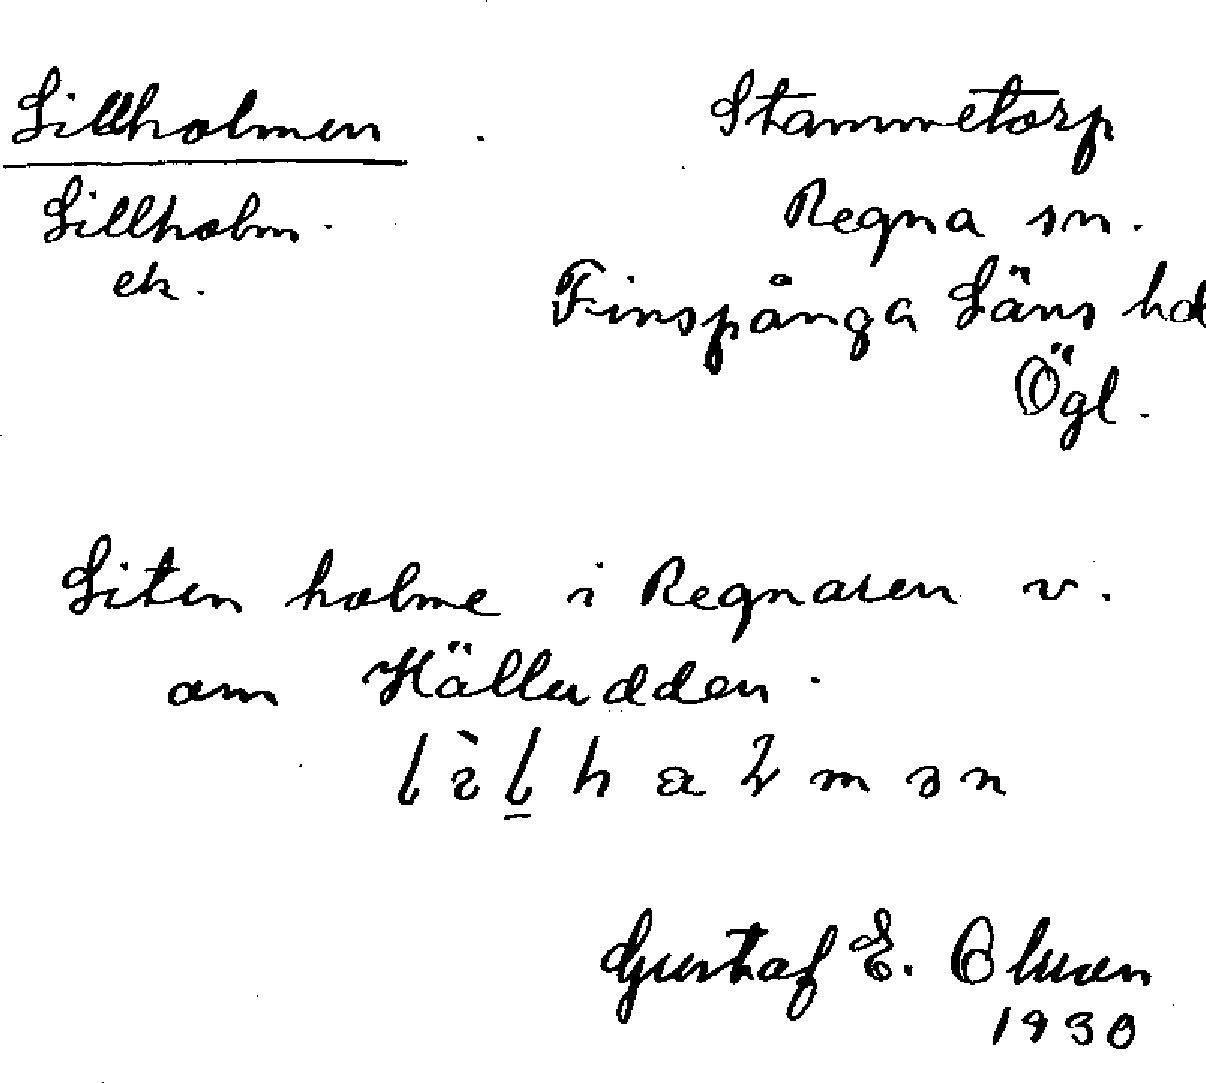 Lillholmen
Lillholm.
ek.
Stammetorp
Regna sn.
Finspånga Läns hd
Ögl.
Liten holme i Regnaren v.
om Källudden.
Gustaf E. Olsson
1930